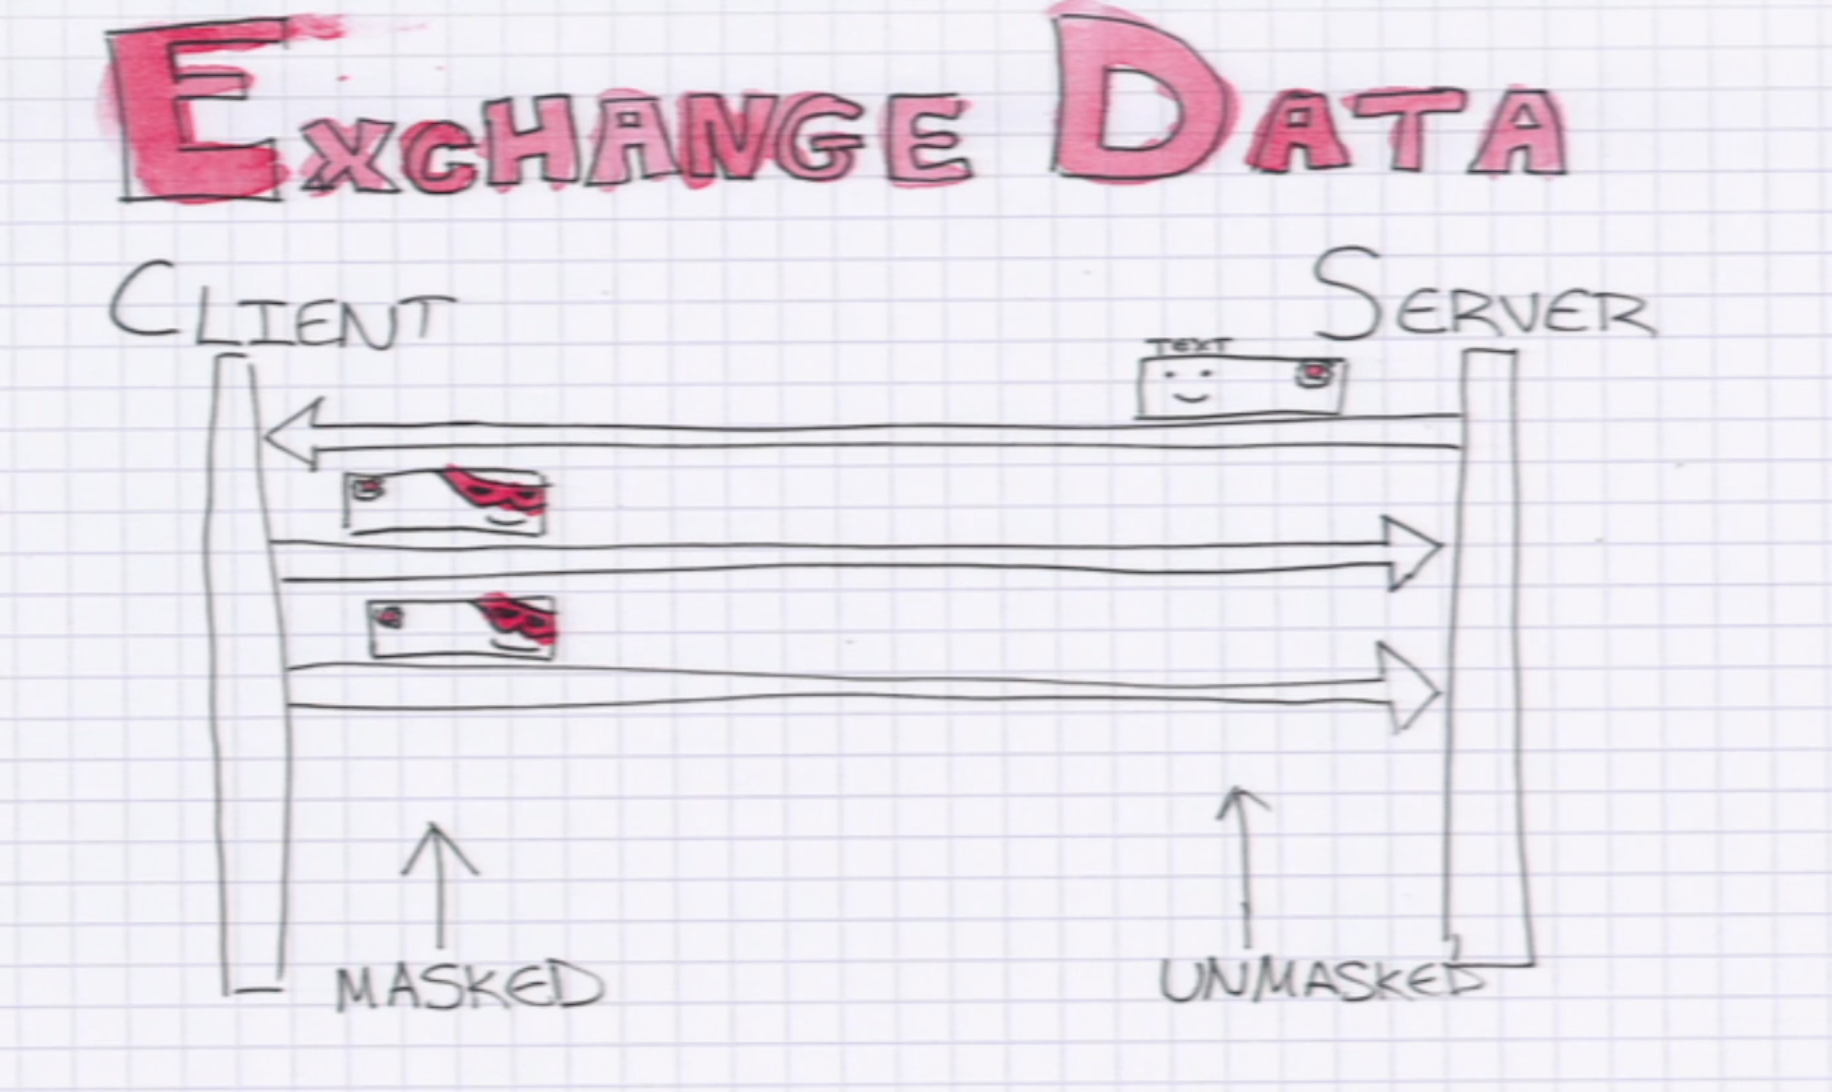 EXCHANGE DATA
CLIENT
SERVER
TEXT
MASKED
UNMASKED